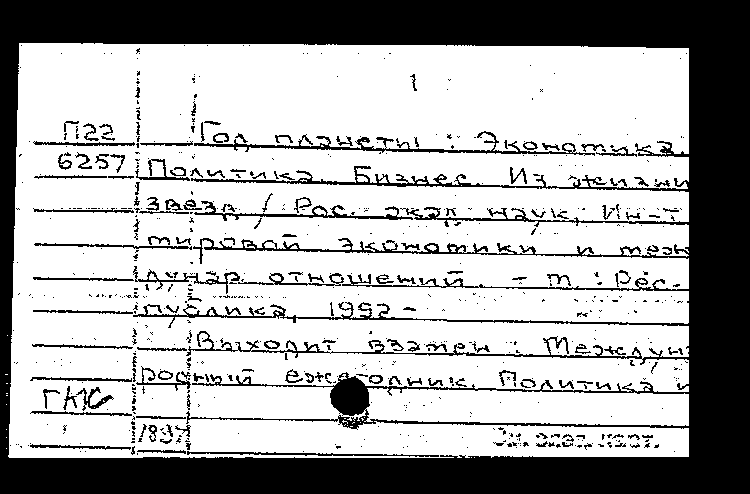 1
П22 Год планеты : Экономика.
6257 Политика. Бизнес. Из жизни
звезд / Рос. акад. наук, Ин-т
мировой экономики и меж
дунар. отношений. - М. : Рес-
публика, 1992 -
Выходит взамен : Междуна
родный ежегодник. Политика и
ГКЮ
1897 См. след. карт.